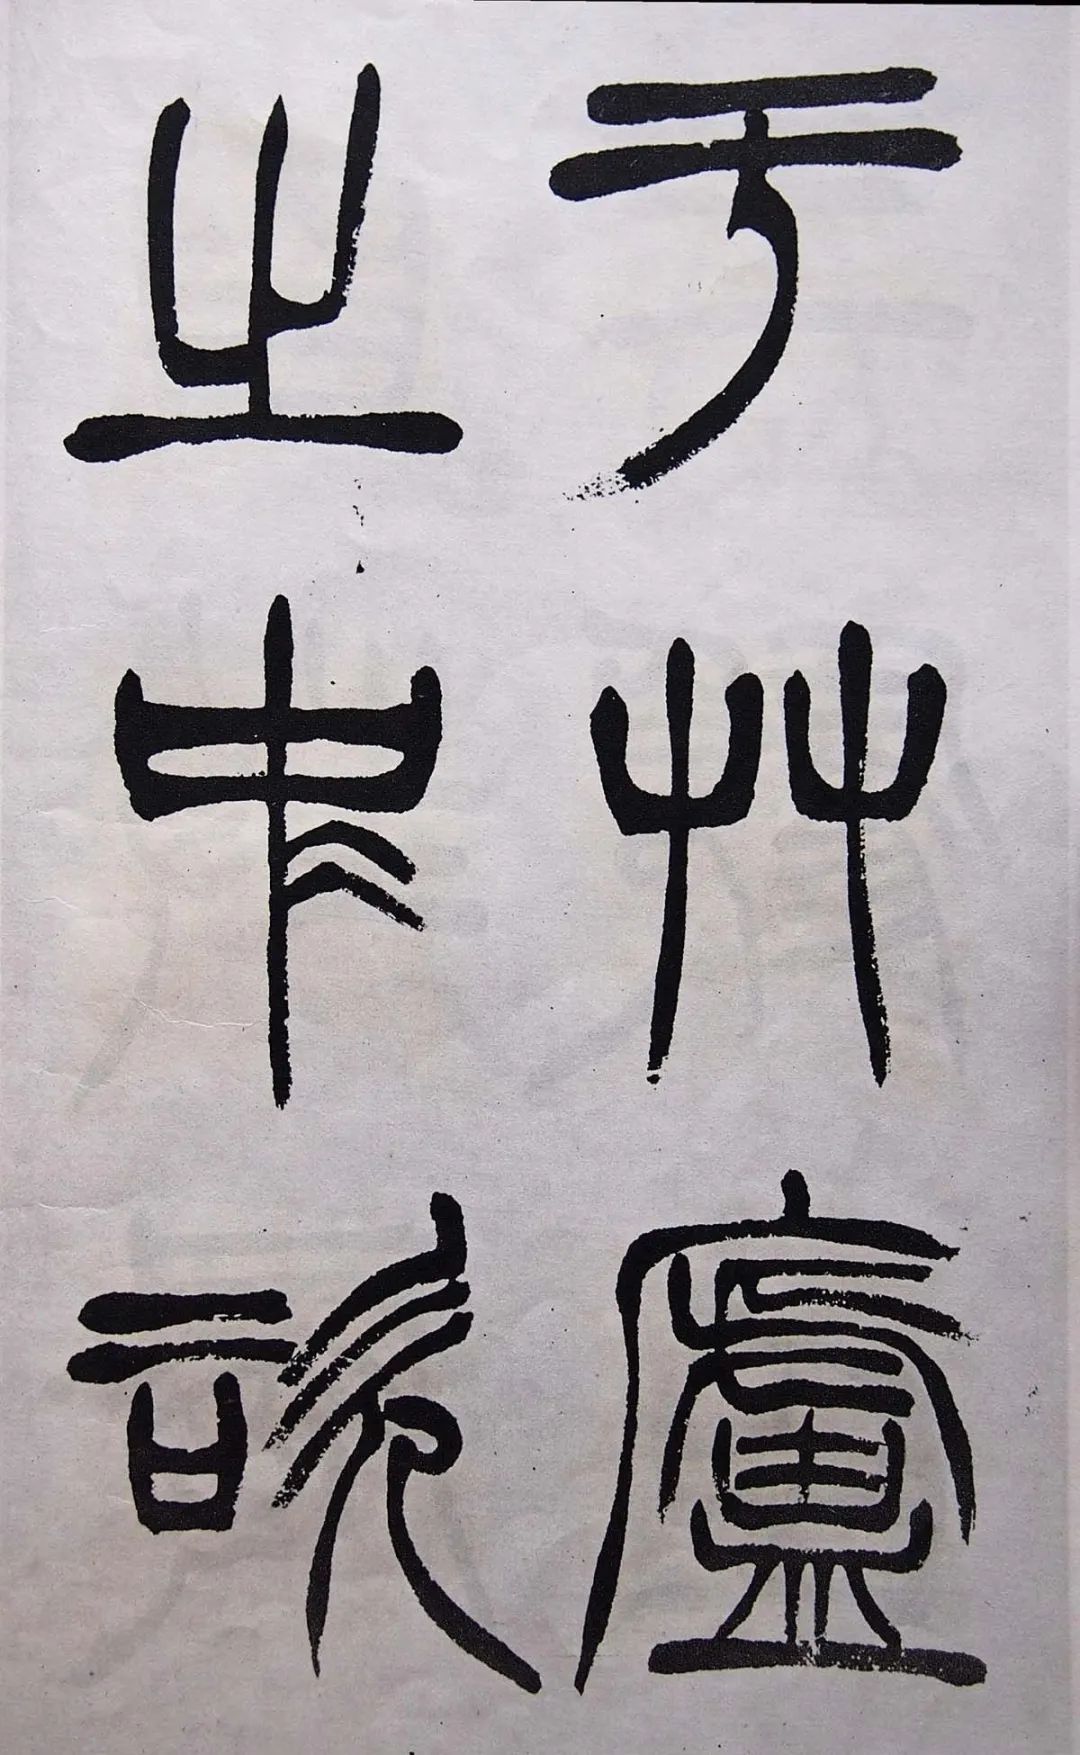 于艸廬
之中諮